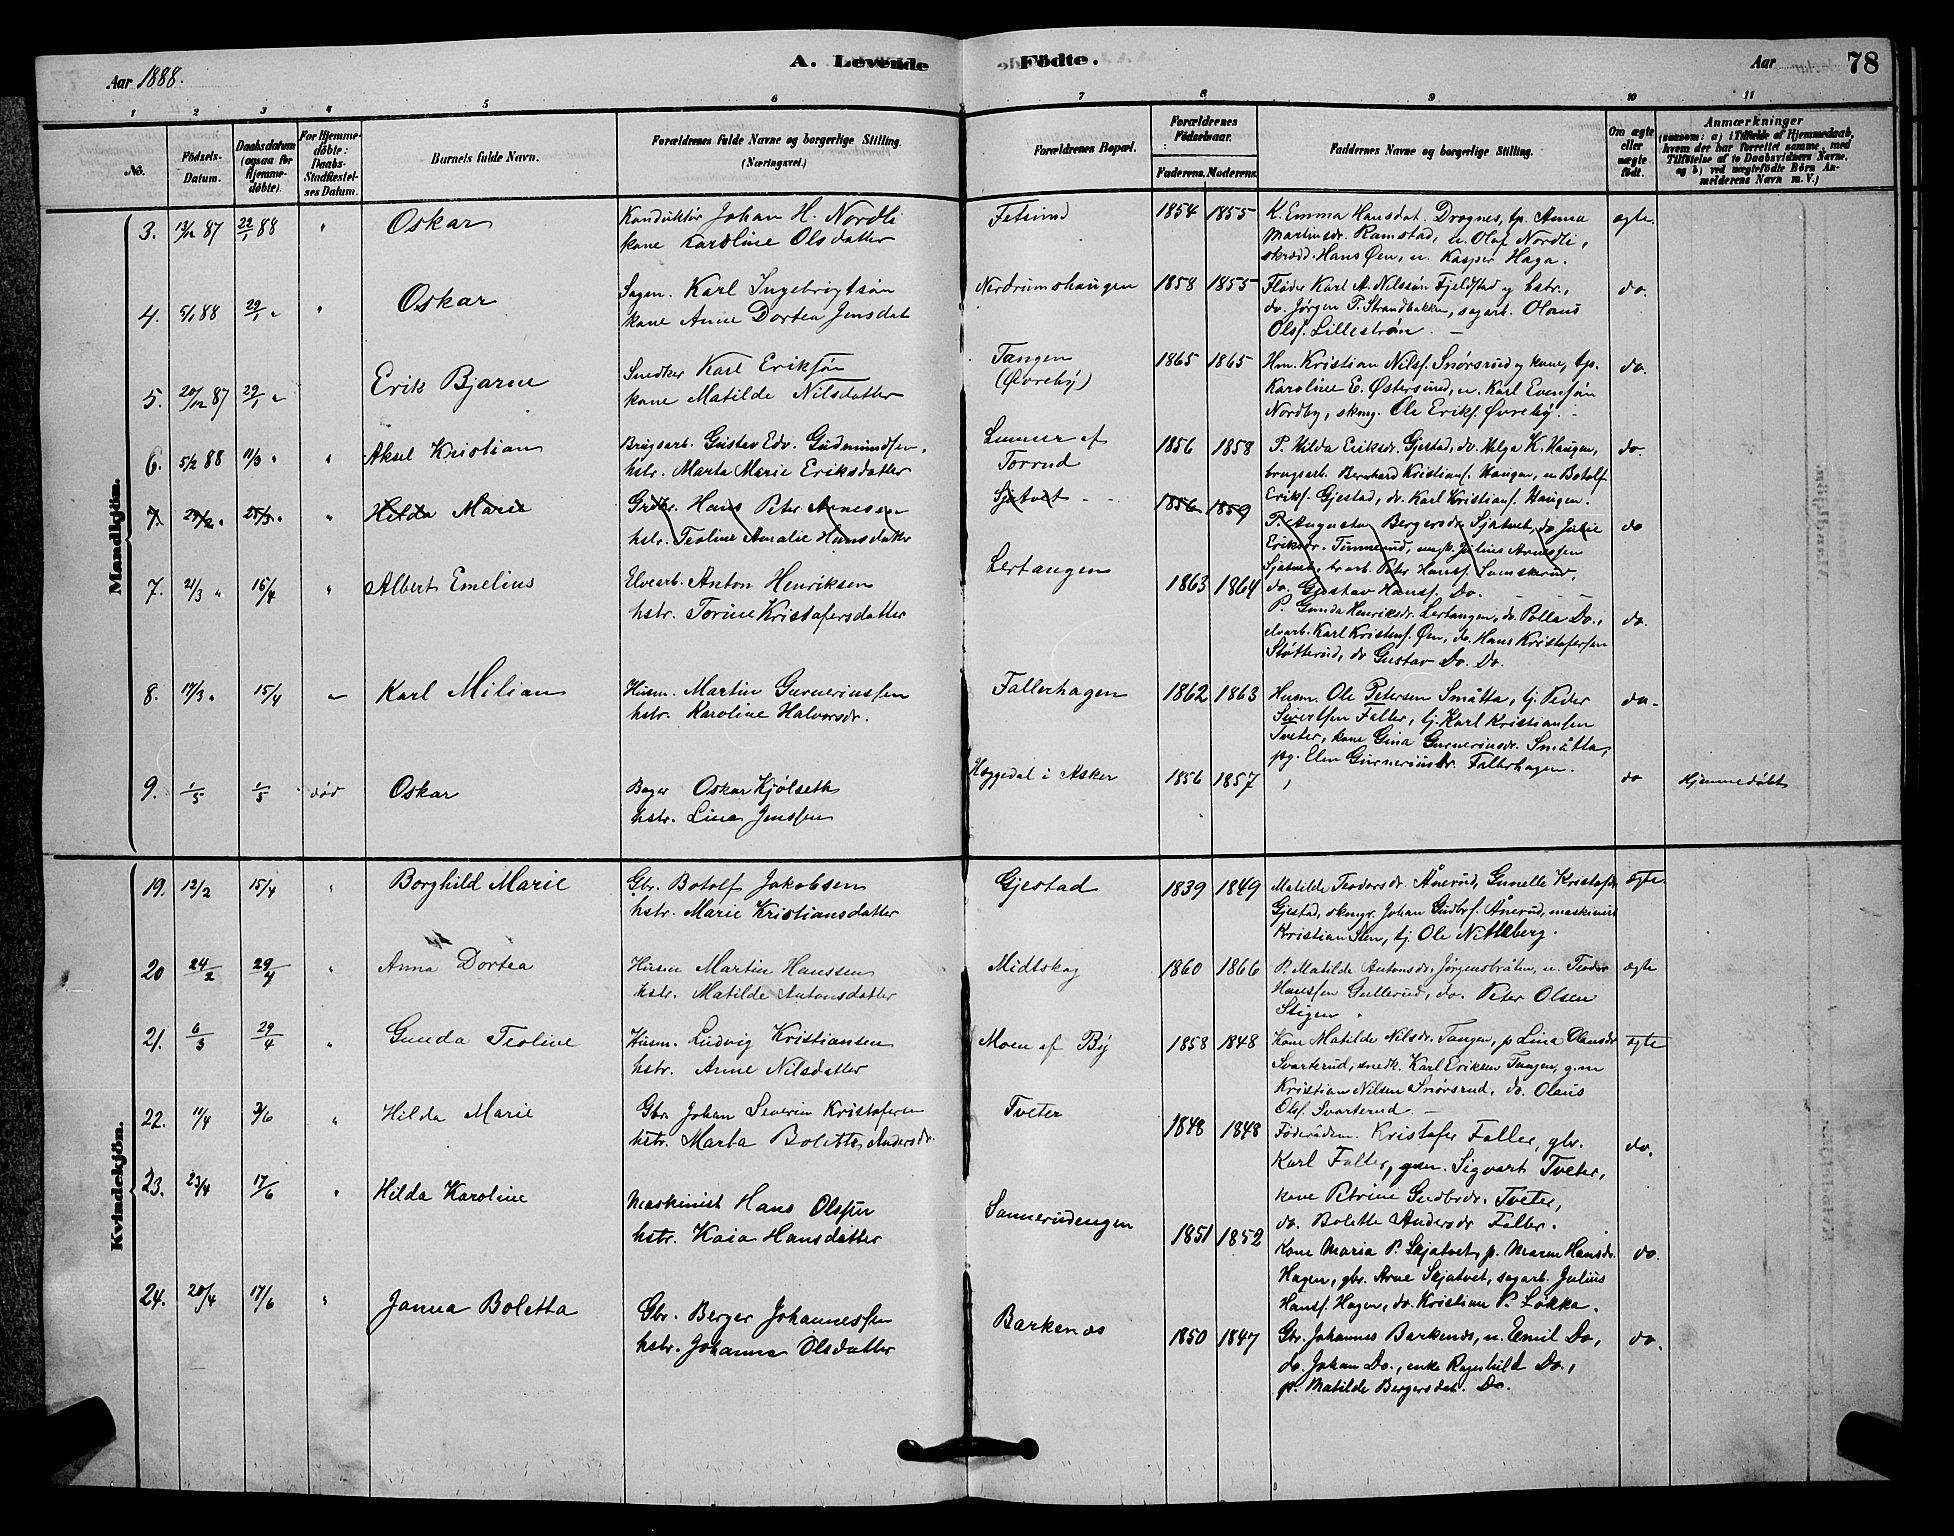 Aar 1888.
A. Levende Födte.
Aar
78
1 2 3 4 5 6 7 8 9 10 11
No.
Födsels-Datum.
Daabsdatum (ogsaa for Hjemme-döbte).
For Hjemme-döbte: Daabs-Stadfæstel-ses Datum.
Barnets fulde Navn.
Forældrenes fulde Navne og borgerlige Stilling. (Næringsvei.)
Forældrenes Bopæl.
Forældrenes Födselsaar.
Faderens. Moderens.
Faddernes Navne og borgerlige Stilling.
Om ægte eller uægte födt.
Anmærkninger
(saasom: a) i Tilfælde af Hjemmedaab, hvem der har forrettet samme, med Tilföielse af to Daabsvidners Navne, og b) ved uægtefödte Börn Anmelderens Navn m. V.)
Mandkjön.
3. 13/12 87 22/1 88 " Oskar
Konduktør Johan H. Nordli
kone Karoline Olsdatter
Fetsund 1854 1855
K. Emma Hansdat. Dragnes, tp. Anna
Martinsdr. Ramstad, u. Olaf Nordli,
skrædd. Hans Øen, u. Kasper Haga.
ægte.
4. 5/1 88 29/1 " " Oskar
Sagm. Karl Ingebrigtsøn
kone Anne Dortea Jensdat
Nordrumshaugen 1858 1855
Fløder Karl A. Nilssøn Fjeldstad og hstr.,
do. Jørgen T. Strandbakken, sagarb. Olaus
Olsf. Lillestrøm. —
do.
5. 20/12 87 29/1 " Erik Bjarne
Snedker Karl Eriksøn
kone Matilde Nilsdatter
Tangen
(Øvreby)
1865 1865
Hm. Kristian Nilsf. Snorsrud og kone, tp.
Karoline E. Østersund, u. Karl Evensøn
Nordby, skmg. Ole Eriks. Øvreby.
do.
6. 5/2 88 11/3 " " Aksel Kristian
Brugsarb. Gustav Edv. Gudmundsen,
hstr. Marte Marie Eriksdatter
Lunner af
Torrud
1856 1858
P. Hilda Eriksdr. Gjestad, do. Helga K. Haugen,
brugsarb. Bernhard Kristiansf. Haugen, u Botolf
Eriksf. Gjestad, do. Karl Kristiansf. Haugen.
do.
7. 29/2 " 25/3 " " Hilda Marie
Grdbr. Hans Peter Arnesen
hstr. Teoline Amalie Hansdatter
Sjatvet 1856 1859
P. Augusta Bergersdr Sjatvet, do Julie
Eriksdr. Timmerud, ungk. Julius Arnessen
Sjatvet, br. arb. Peter Hansf.
do. Gustav Hansf. Do.
do
7. 21/3 " 15/4 " Albert Emelius
Elvearb. Anton Henriksen
hstr. Torine Kristofersdatter
Lertangen 1863 1864
P. Gunda Henriksdr. Lertangen, do. Polla Do.,
elvarb. Karl Kristensf. Øen, do. Hans Kristofersen
Støtterud, do Gustav Do. Do.
do.
8. 17/3 " 15/4 " Karl Milian
Husm. Martin Gurneriussen
hstr. Karoline Halvorsdr.
Fallerhagen 1862 1863
Husm. Ole Petersen Småtta, tj. Peder
Sivertsen Faller, tj. Karl Kristiansen
Tveter, kone Gina Gurneriusdr. Småtta,
pg. Elen Gurneriusdr. Fallerhagen.
do.
9. 1/5 1/5 død Oskar
Bager Oskar Kjølseth
hstr. Lina Jenssen
Høggedal i Asker 1856 1857
do Hjemmedøbt
Kvindekjön.
19. 12/2 15/4 " Borghild Marie
Gbr. Botolf Jakobsen
hstr. Marie Kristiansdatter
Gjestad 1839 1849
Matilde Teodorsdr. Ånerud, Gunelle Kristofdr
Gjestad, skmgr. Johan Gudbrf. Ånerud, maskinist
Kristian Sten, tj. Ole Nitteberg.
ægte.
20 24/2 29/4 " Anna Dortea
Husm Martin Hanssen
hstr. Matilde Antonsdatter
Midtskog 1860 1866
P. Matilde Antonsdr. Jørgensbråten, u. Teodor
Hanssen Gullerud, do. Peter Olsen
Stigen.
ægte
21. 6/3 29/4 " Gunda Teoline
Husm. Ludvig Kristiansen
hstr. Anne Nilsdatter
Moen af By 1858 1848
Kone Matilde Nilsdr. Tangen, p Lina Olausdr
Svarterud, snedk. Karl Eriksen Tangen, gm
Kristian Nilsen Snorsrud, do. Olaus
Olsf. Svarterud. —
ægte
22. 11/4 3/6 " Hilda Marie
Gbr. Johan Severin Kristofersen
hstr. Marta Bolette Andersdr.
Tveter 1848 1848
Föderådsm. Kristofer Faller, gbr.
Karl Faller, gsøn. Sigvart Tveter,
kone Petrine Gudbrdr. Tveter,
do. Bolette Andersdr Faller.
do.
23. 23/4 17/6 " Hilda Karoline
Maskinist Hans Olssen
hstr. Kaia Hansdatter
Sannerudengen 1851 1852
Kone Maria P. Skjatvet, p. Maren Hansdr.
Hagen, gbr. Arne Skjatvet, sagarb. Julius
Hansf. Hagen, do. Kristian P. Løkka.
do.
24. 20/4 17/6 " Janna Boletta
Gbr. Berger Johannessen
hstr. Johanna Olsdatter
Barkenæs 1850 1847
Gbr. Johannes Barkenæs, u. Emil Do,
do. Johan Do., enke Ragnhild Do.,
p. Matilde Bergersdat. Do.
do.